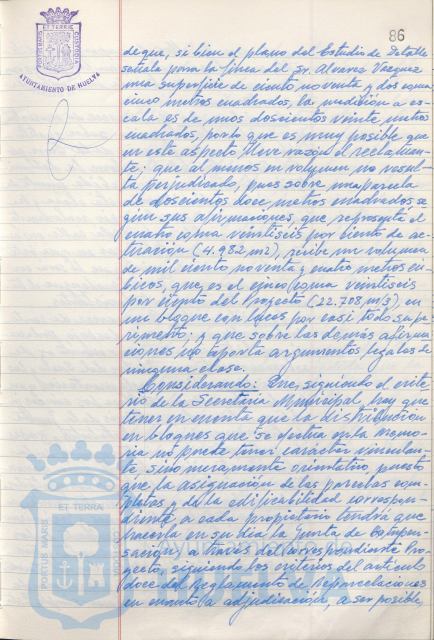 86
PORTUS MARIS ET TERRAE CUSTODIA
AYUNTAMIENTO DE HUELVA
de que, si bien el plano del Estudio de Detalle
señala para la finca del Sr. Alvarez Vazquez
una superficie de ciento noventa y dos coma
cinco metros cuadrados, la medición a es-
cala es de unos doscientos veinte metros
cuadrados, por lo que es muy posible que
en este aspecto lleve razón el reclaman-
te; que al menos en volumen no resul-
ta perjudicado, pues sobre una parcela
de doscientos doce metros cuadrados, se
gún sus afirmaciones, que representa el
cuatro coma veintiseis por ciento de ac-
tuación (4.982 m2), recibe un volumen
de mil ciento noventa y cuatro metros cú-
bicos, que es el cinco coma veintiseis
por ciento del Proyecto (22.708 m/3), en
un bloque con luces por casi todo su pe-
rímetro; y que sobre las demás afirma-
ciones no aporta argumentos legales de
ninguna clase.
Considerando: Que, siguiendo el crite-
rio de la Secretaría Municipal, hay que
tener en cuenta que la distribución
en bloques que se efectua en la Memo-
ria no puede tener carácter vinculan-
te, sino meramente orientativo, puesto
que la asignación de las parcelas com-
pletas y de la edificabilidad correspon-
diente a cada propietario tendrá que
hacerla en su día la Junta de Compen-
sación, a través del correspondiente Pro-
yecto, siguiendo los criterios del artículo
doce del Reglamento de Reparcelaciones
en cuanto a adjudicación, a ser posible,
PORTUS MARIS ET TERRA